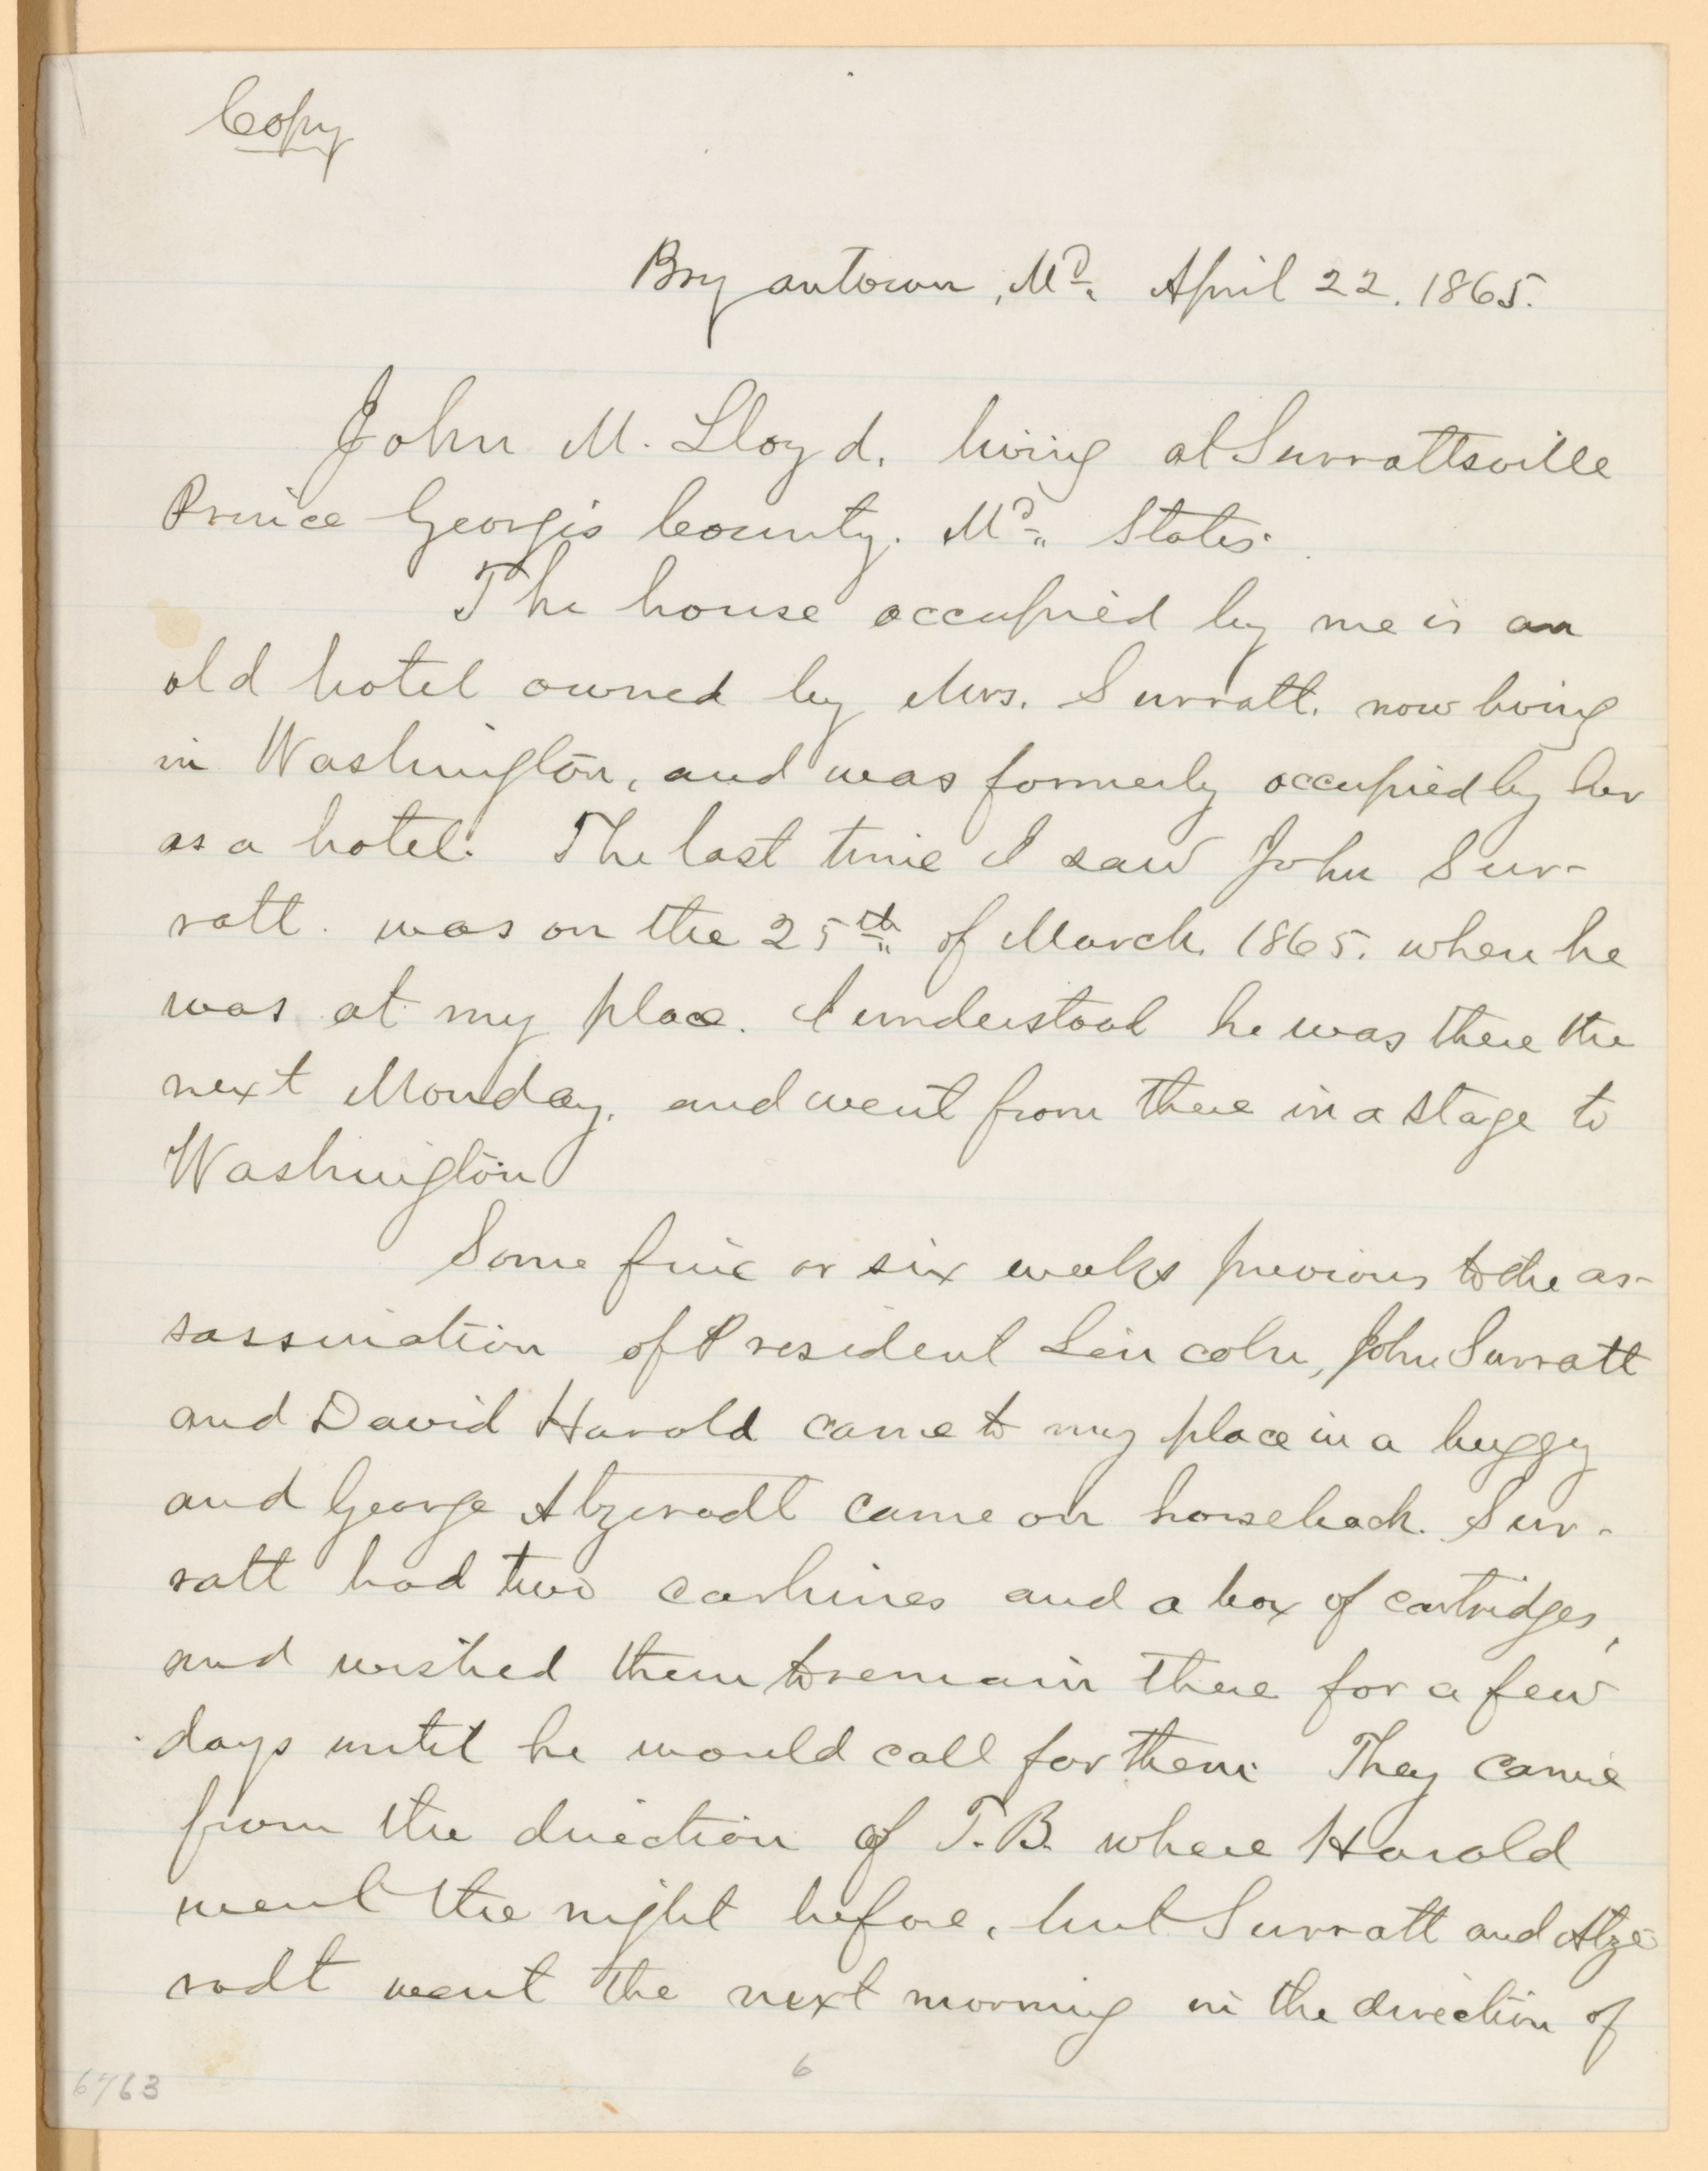 Copy
Bryantown, Md. April 22. 1865.
John M. Lloyd, living at Surrattsville
Prince Georges County. Md. States:
The house occupied by me is an
old hotel owned by Mrs. Surratt. now living
in Washington, and was formerly occupied by her
as a hotel. The last time I saw John Sur-
ratt. was on the 25th of March 1865. when he
was at my place. I understood he was there the
next Monday, and went from there in a stage to
Washington
Some five or six weeks previous to the as-
sassination of President Lincoln, John Surratt
and David Harold came to my place in a buggy
and George Atzerodt came on horseback. Sur-
ratt had two carbines and a box of cartridges,
and wished them to remain there for a few
days until he would call for them. They came
from the direction of T.B. where Harold
went the night before, but Surratt and Atze
rodt went the next morning in the direction of
6
6763